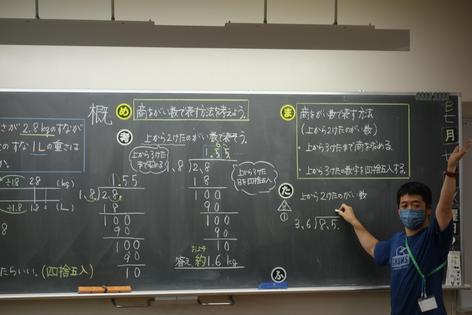 さが2.8kgのすなが
のすな1Lの重さは
÷1.8 2.8 (kg)
÷1.8 1.8 (L)
たらいい。(四捨五入)
概
め 商をがい数で表す方法を考えよう。
考 上から2けたのがい数で表そう。
上から3けた
1.55
1.8)2.8
18
100
90
100
90
10
1.55
1.8)2.8
18
100
90
100
90
100
答え 約1.6kg
上から3けた
目を四捨五入
ま 商をがい数で表す方法
(上から2けたのがい数)
・上から3けたまで商を求める。
・上から3けたの数字を四捨五入する。
た
上から2けたのがい数
3.6)8.5
ふ
月